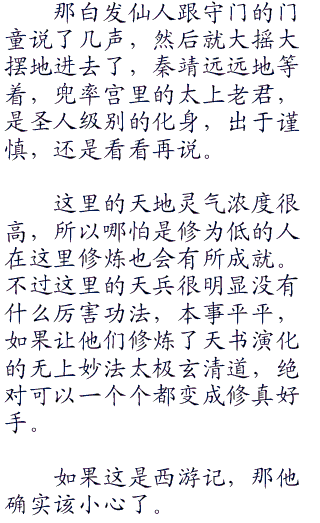 那白发仙人跟守门的门
童说了几声，然后就大摇大
摆地进去了，秦靖远远地等
着，兜率宫里的太上老君，
是圣人级别的化身，出于谨
慎，还是看看再说。
这里的天地灵气浓度很
高，所以哪怕是修为低的人
在这里修炼也会有所成就。
不过这里的天兵很明显没有
什么厉害功法，本事平平，
如果让他们修炼了天书演化
的无上妙法太极玄清道，绝
对可以一个个都变成修真好
手。
如果这是西游记，那他
确实该小心了。